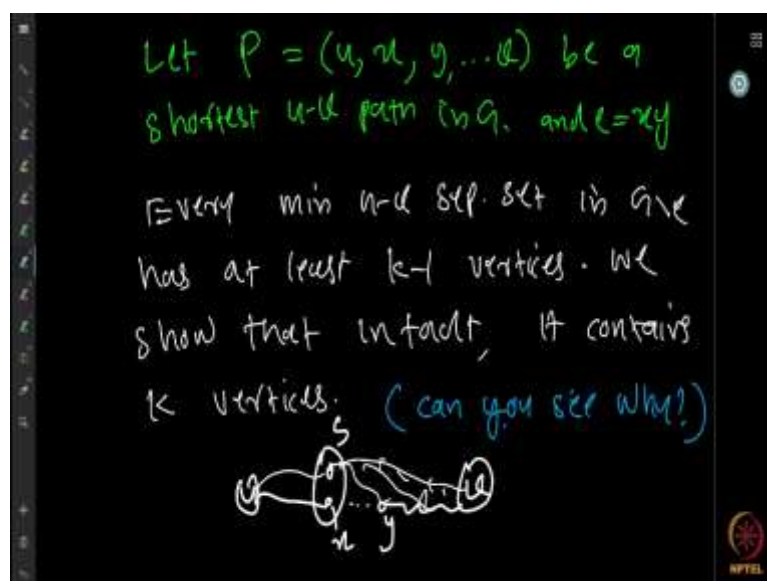 Let P = (u, x, y, ... v) be a
shortest u-v path in G. and e = xy
Every min u-v sep. set in G\e
has at least k-1 vertices. We
show that infact, it contains
k vertices. (can you see why?)
S
u ... v
x y
NPTEL